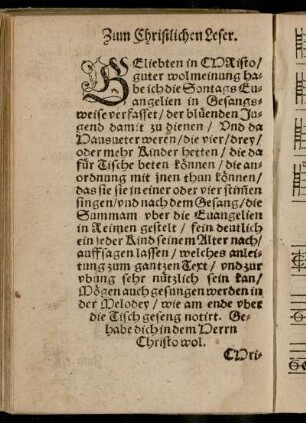 Zum Christlichen Leser.
GEliebten in CHristo/
guter wolmeinung ha-
be ich die Sontags Eu-
angelien in Gesangs-
weise verfasset/ der blüenden Ju-
gend damit zu dienen/ Vnd da
Hausueter weren/ die vier/ drey/
oder mehr Kinder hetten/ die da
für Tische beten können/ die an-
ordnung mit jnen thun können/
das sie sie in einer oder vier stim̃en
singen/ vnd nach dem Gesang/ die
Summam vber die Euangelien
in Reimen gestelt/ fein deutlich
ein jeder Kind seinem Alter nach/
auffsagen lassen/ welches anlei-
tung zum gantzen Text/ vnd zur
vbung sehr nützlich sein kan/
Mögen auch gesungen werden in
der Melodey/ wie am ende vber
die Tisch geseng notirt. Ge-
habe dich in dem HErrn
Christo wol.
CHri-